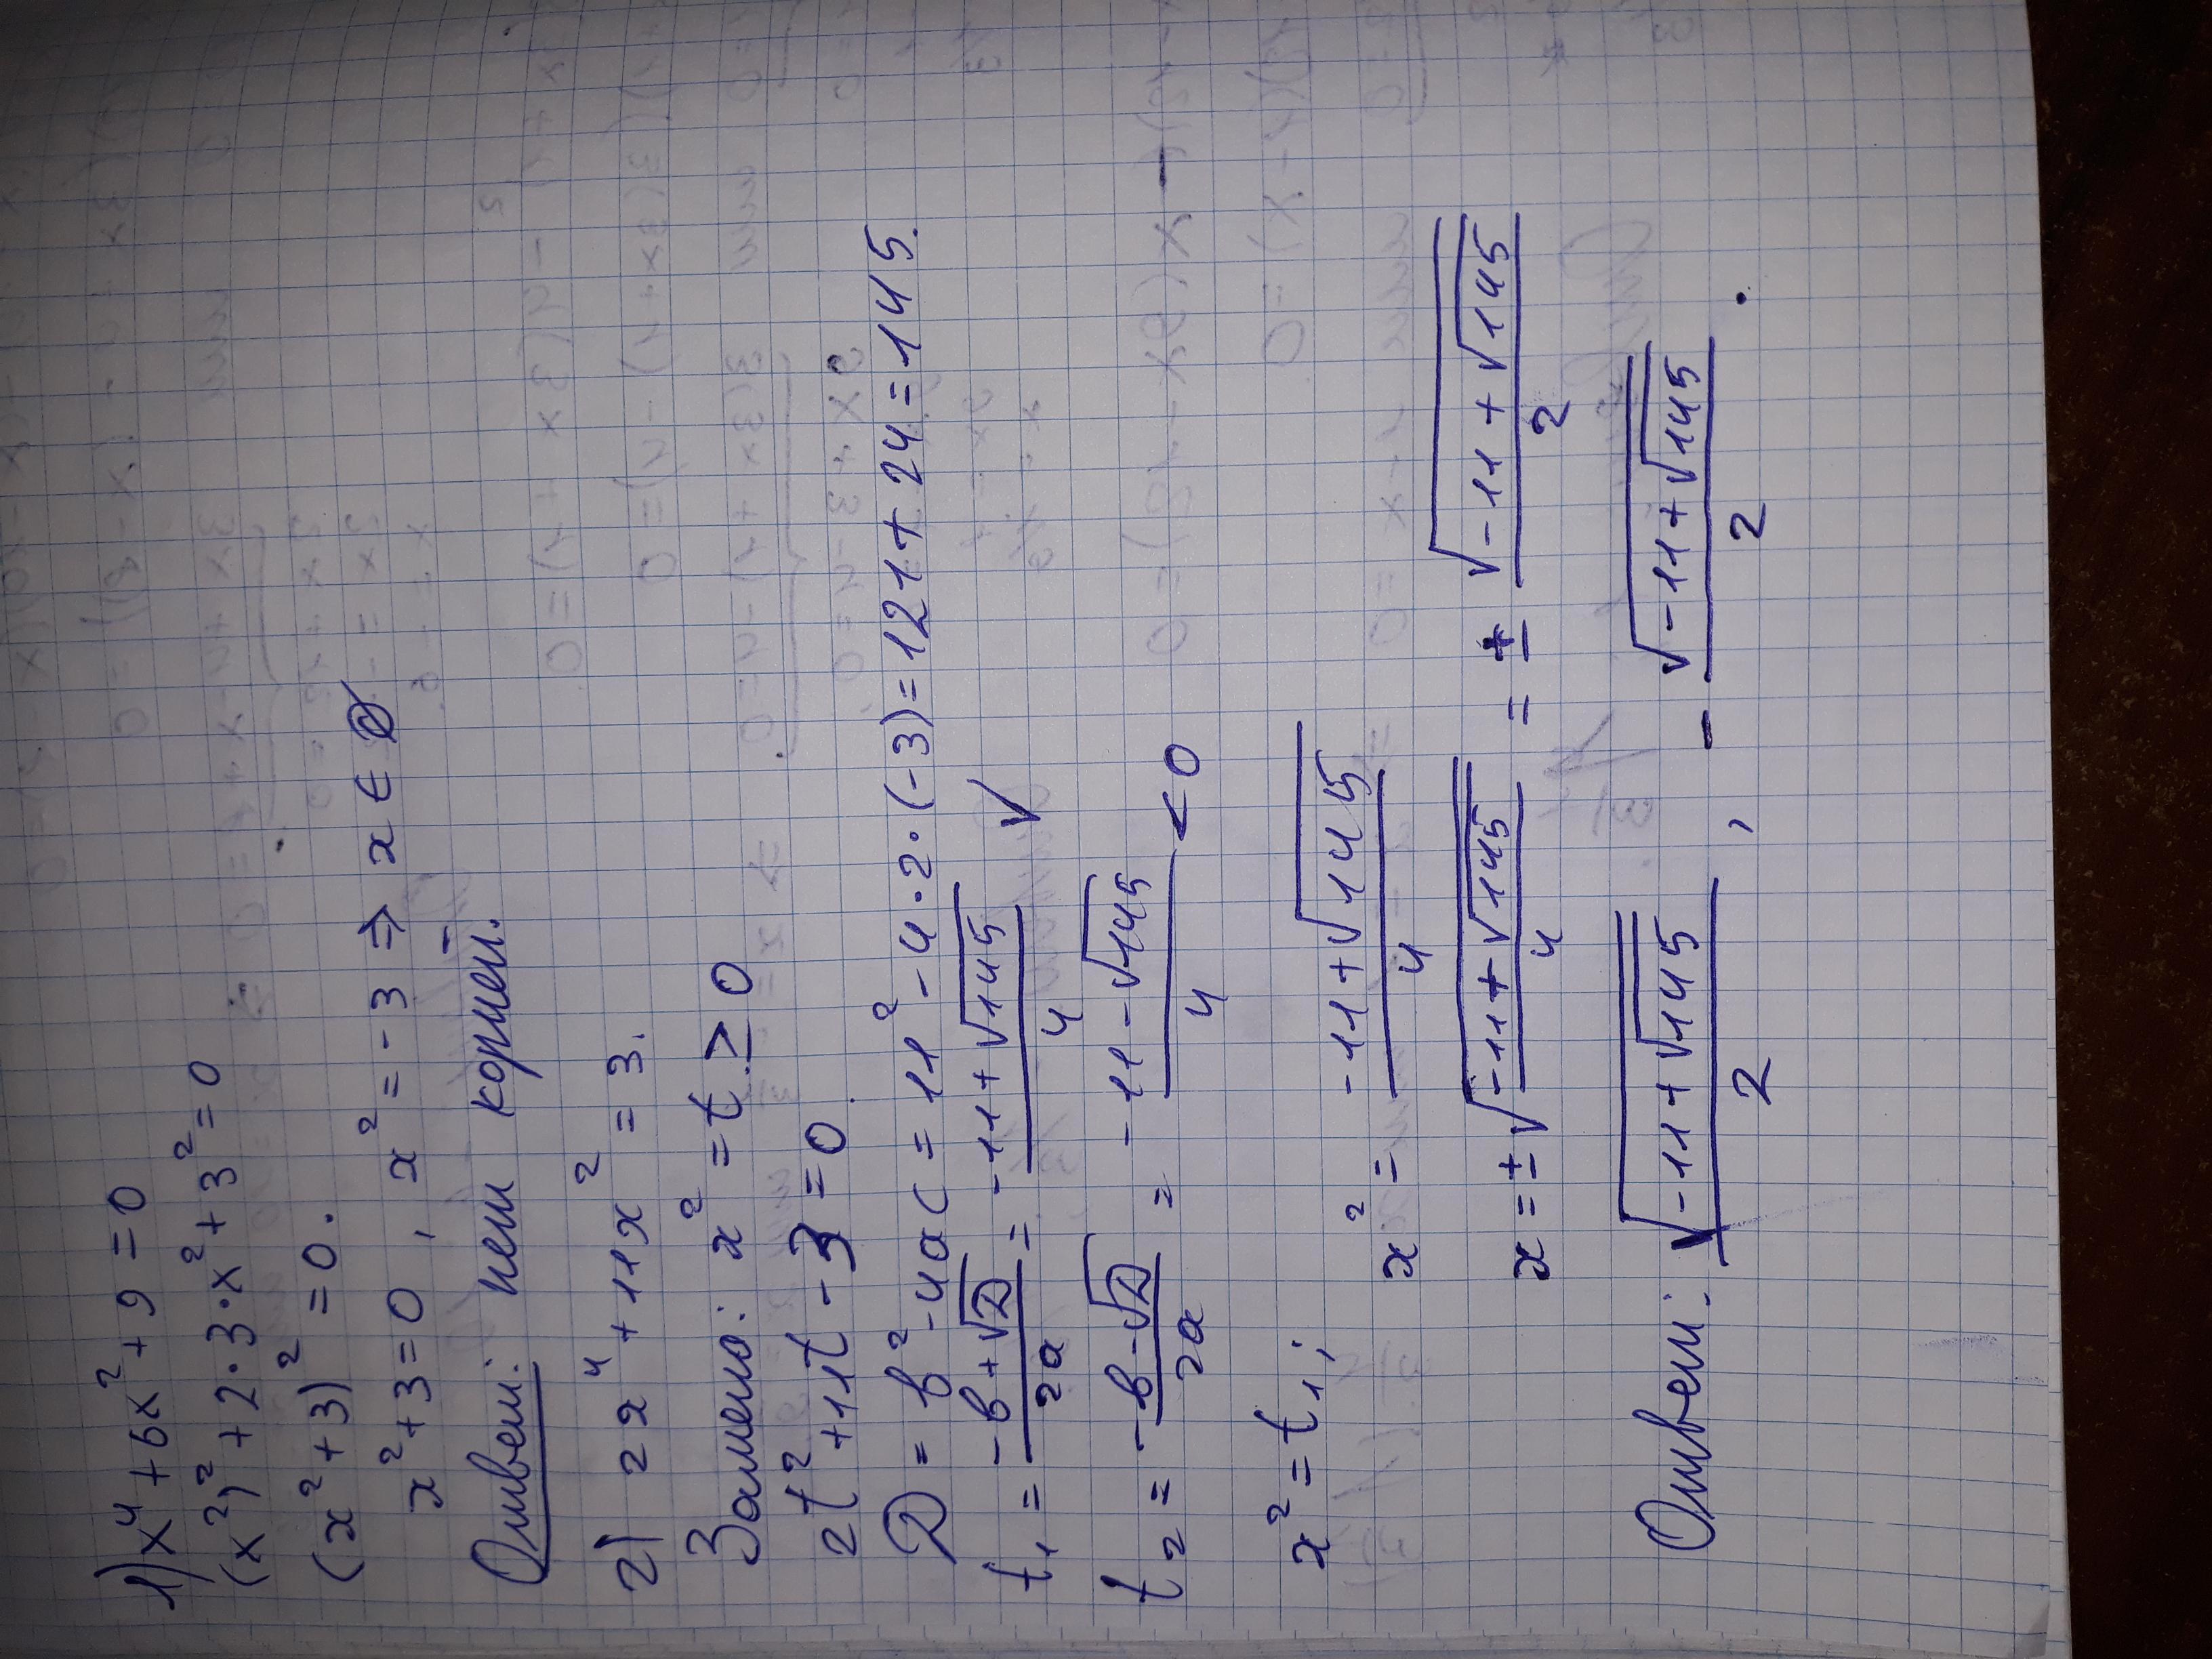 1) x⁴ + 6x² + 9 = 0
(x²)² + 2·3·x² + 3² = 0
(x² + 3)² = 0.
x² + 3 = 0 , x² = -3 ⇒ x ∈ ∅
Ответ: нет корней.
2) 2x⁴ + 11x² = 3.
Замена: x² = t ≥ 0
2t² + 11t - 3 = 0.
D = b² - 4ac = 11² - 4·2·(-3) = 121 + 24 = 145.
t₁ = (-b + √D)/2a = (-11 + √145)/4 √
t₂ = (-b - √D)/2a = (-11 - √145)/4 < 0
x² = t₁; x² = (-11 + √145)/4
x = ± √((-11 + √145)/4) = ± √(-11 + √145)/2
Ответ: √(-11 + √145)/2 , - √(-11 + √145)/2 .